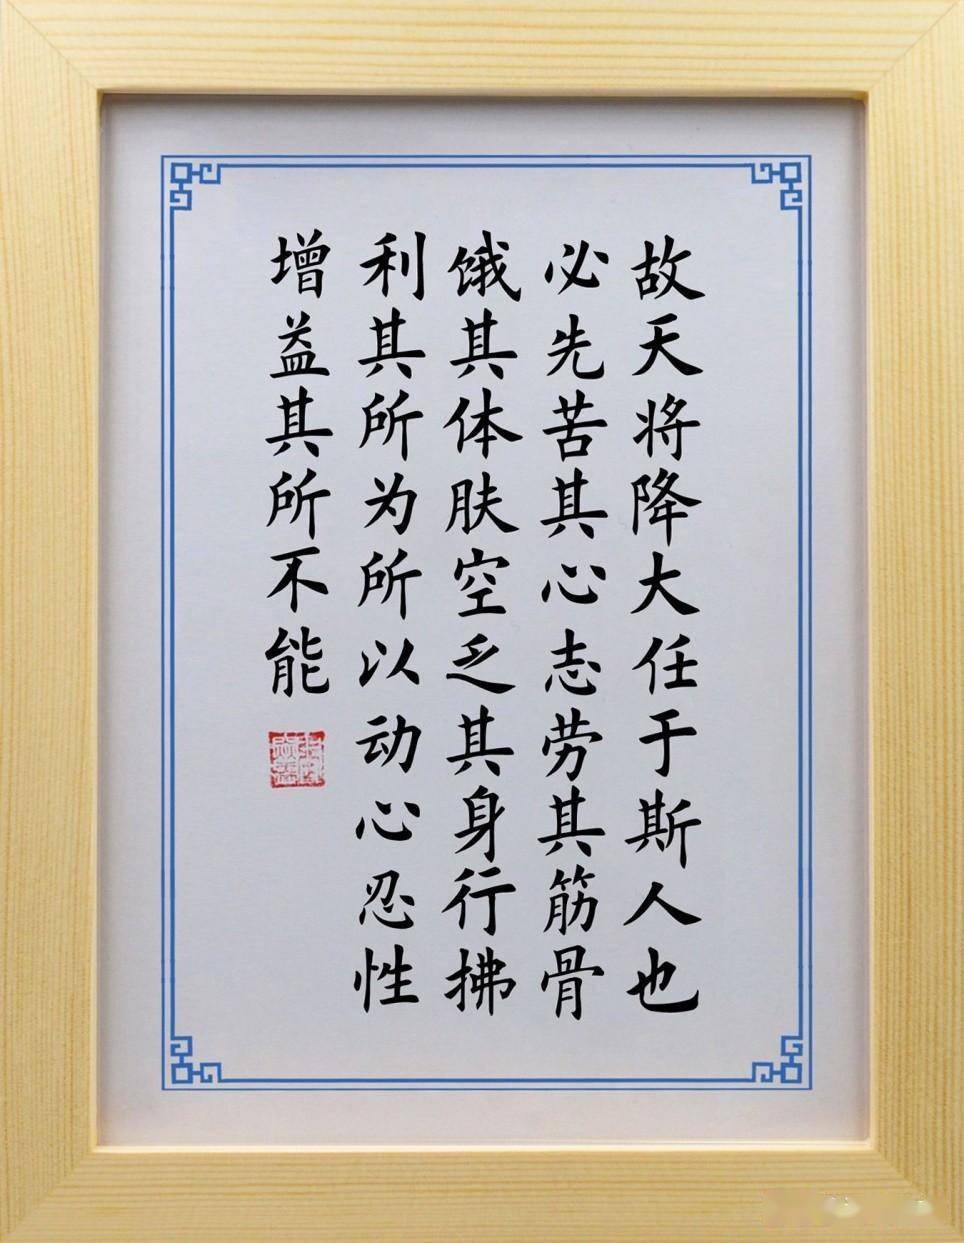 故天将降大任于斯人也
必先苦其心志劳其筋骨
饿其体肤空乏其身行拂
利其所为所以动心忍性
增益其所不能